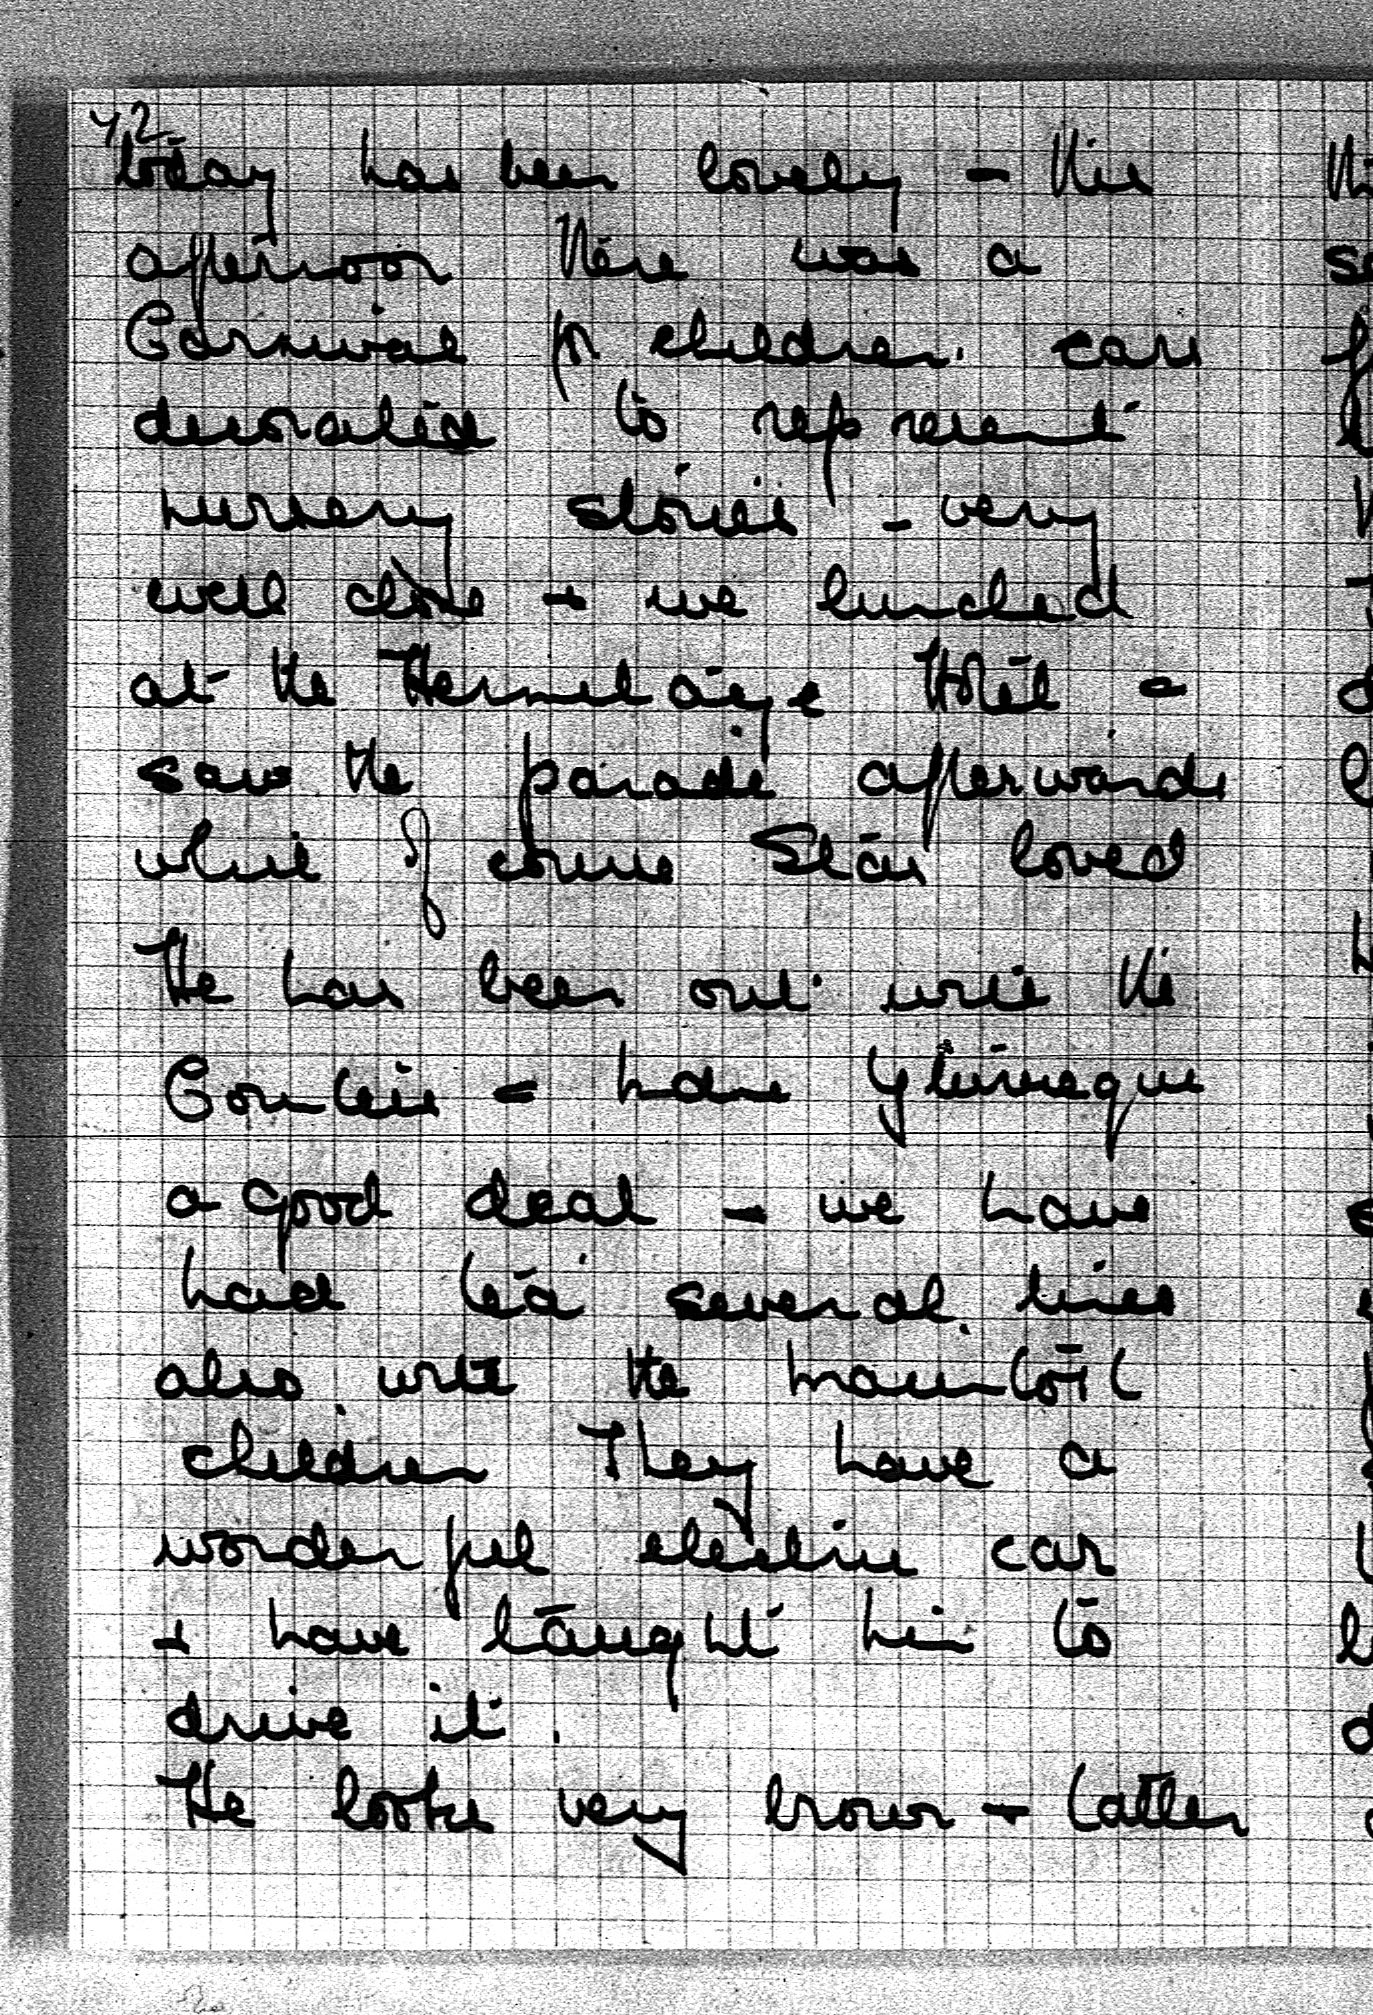 today has been lovely - this
afternoon there was a
Carnival for children. cars
decorated to represent
nursery stories - very
well done + we lunched
at the Hermitage Hotel -
saw the parade afterwards
which of course Stas loved
He has been out with the
a good deal - we have
had tea several times
also with the
children They have a
wonderful electric car
+ have taught him to
drive it.
He looks very brown + fatter